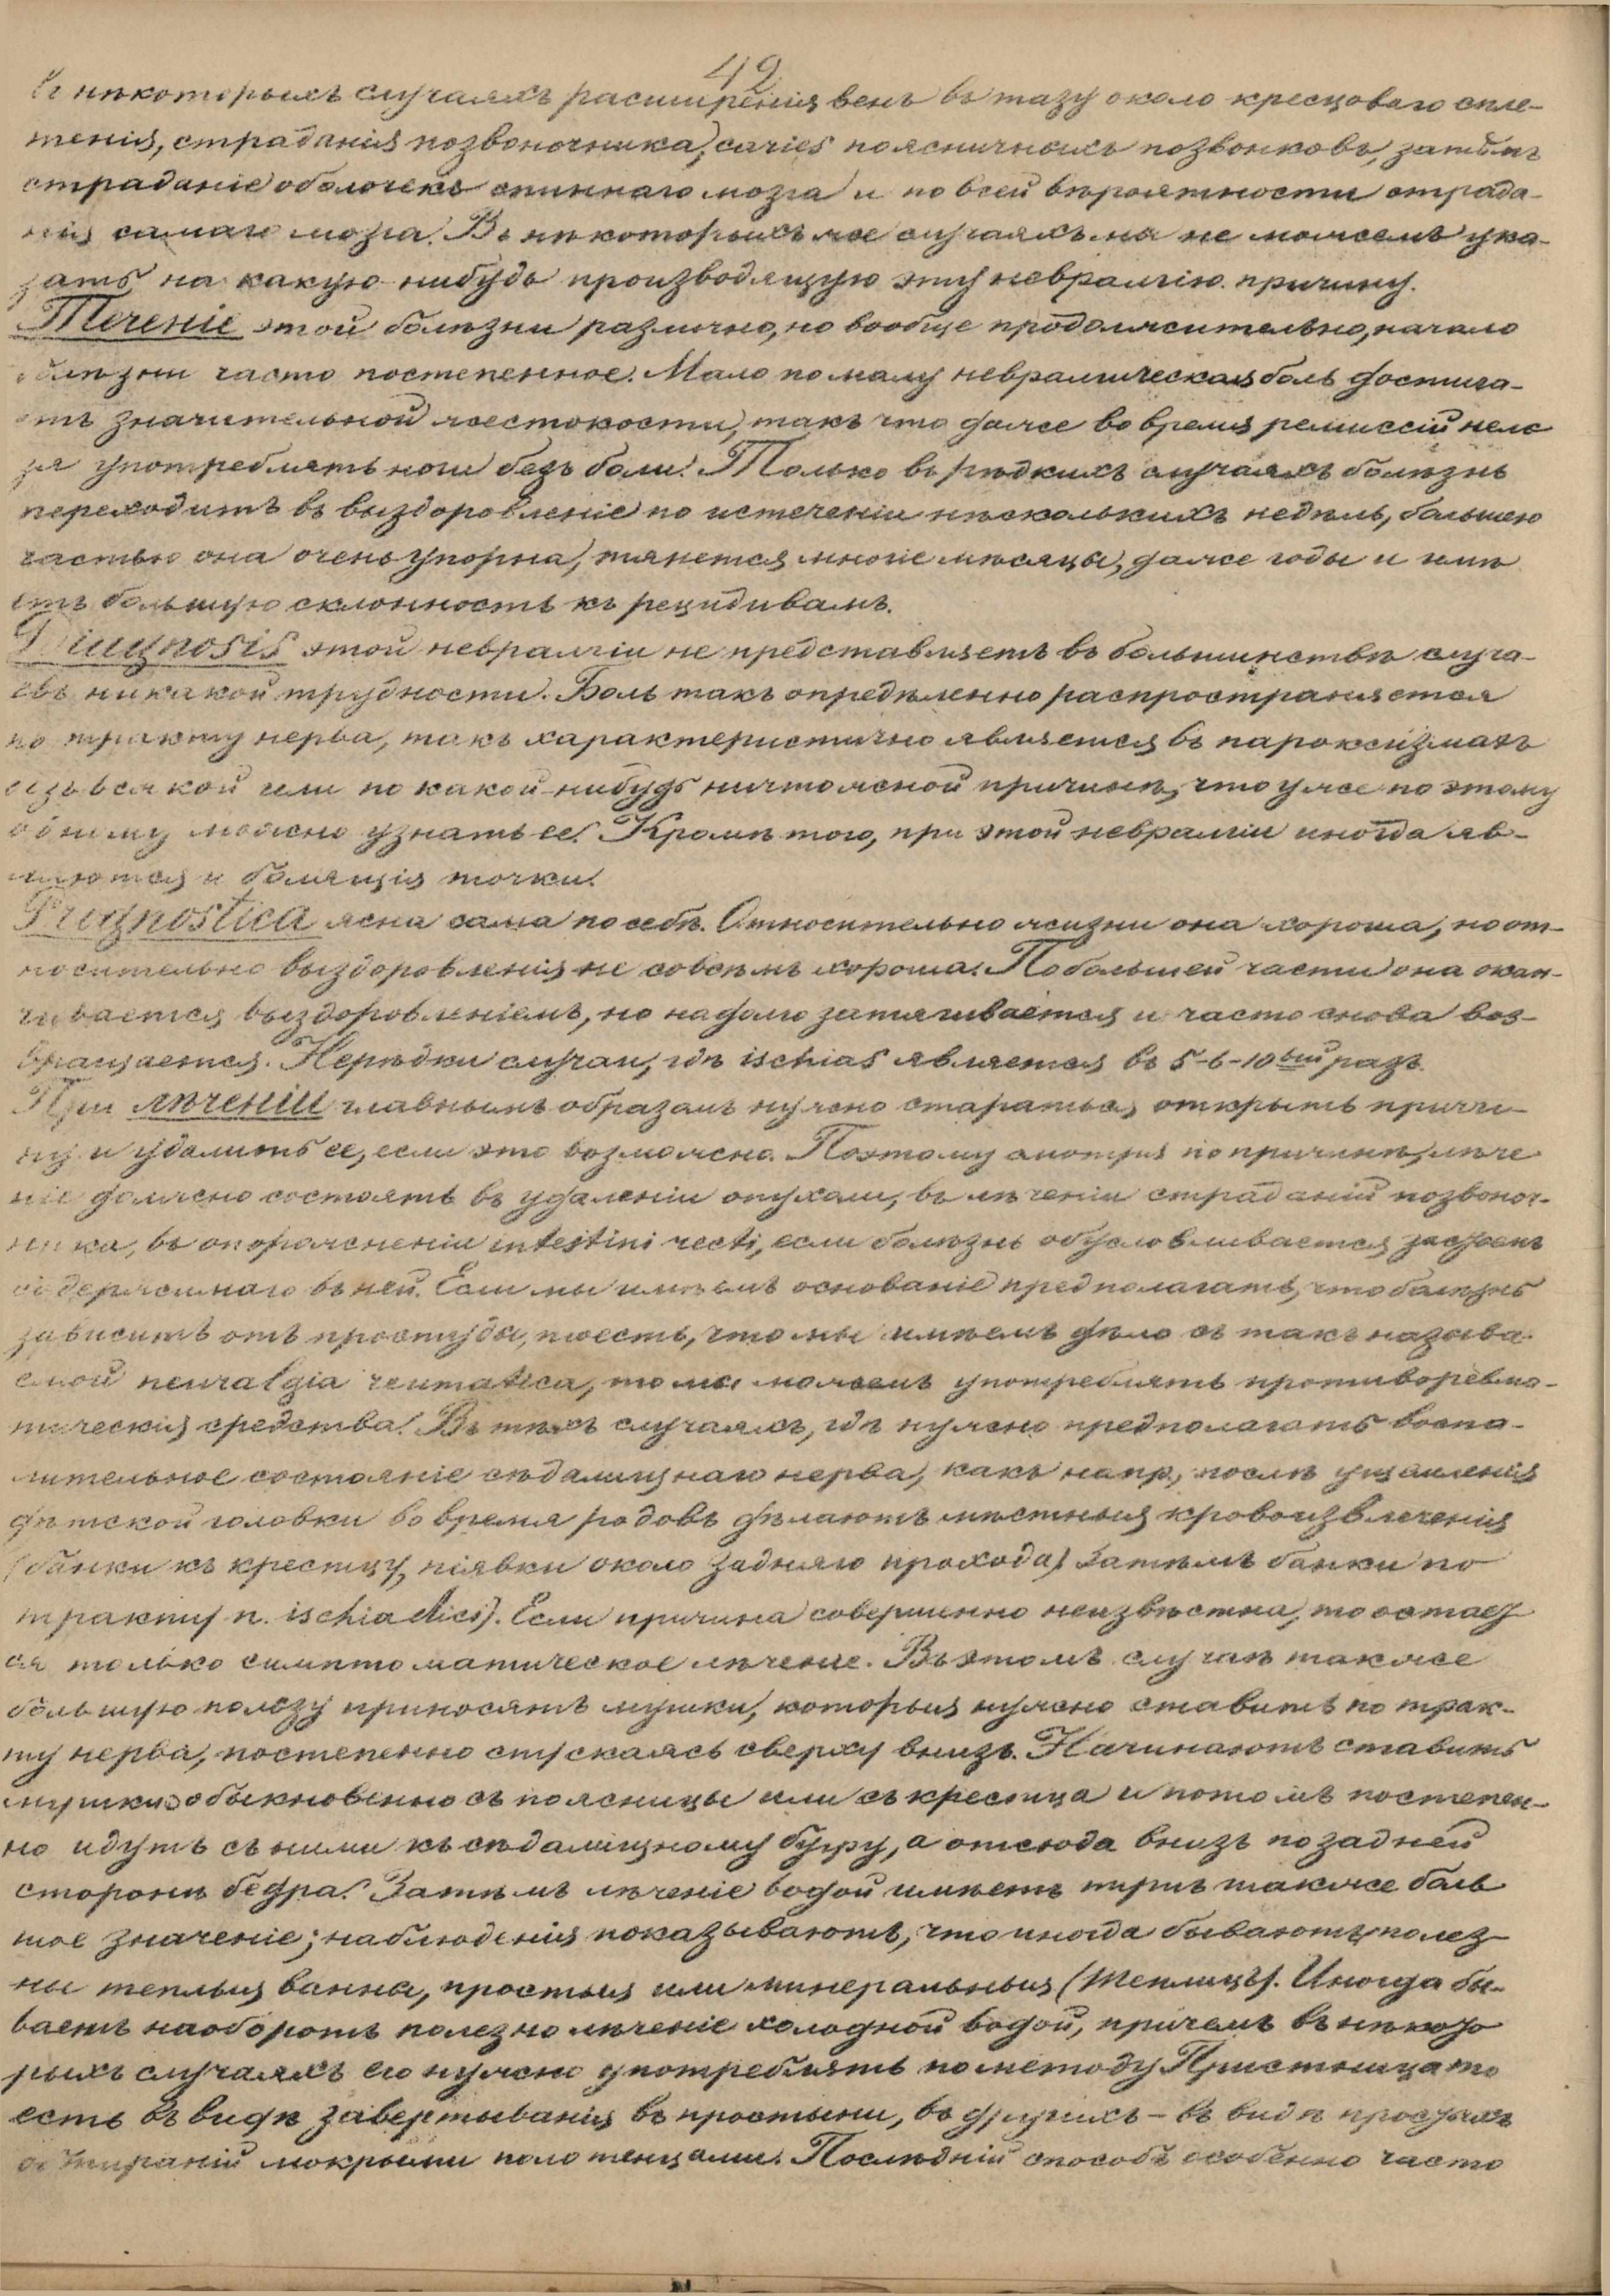 42
въ нѣкоторыхъ случаяхъ расширенія венъ въ тазу около кресцоваго спле-
тенія, страданія позвоночника, caries поясничныхъ позвонковъ, затѣмъ
страданіе оболочекъ спиннаго мозга и по всей вѣроятности страда-
нія самаго мозга. Въ нѣкоторыхъ же случаяхъ мы не можемъ ука-
зать на какую-нибудь производящую эту невралгію причину.
Теченіе этой болѣзни различно, но вообще продолжительно, начало
болѣзни часто постепенное. Мало по малу невралгическая боль достига-
етъ значительной жестокости, такъ что даже во время ремиссій нель
зя употреблять ноги безъ боли. Только въ рѣдкихъ случаяхъ болѣзнь
переходитъ въ выздоровленіе по истеченіи нѣсколькихъ недѣль, большею
частью она очень упорна, тянется многіе мѣсяцы, даже годы и имѣ
етъ большую склонность къ рецидивамъ.
Diagnosis этой невралгіи не представляетъ въ большинствѣ случа-
евъ никакой трудности. Боль такъ опредѣленно распространяется
по тракту нерва, такъ характеристично является въ пароксизмахъ
безъ всякой или по какой-нибудь ничтожной причинѣ, что уже по этому
одному можно узнать ее. Кромѣ того, при этой невралгіи иногда яв-
ляются и болящія точки.
Prognostica ясна сама по себѣ. Относительно жизни она хороша, но от-
носительно выздоровленія не совсѣмъ хороша. По большей части она окан-
чивается выздоровленіемъ, но надолго затягивается и часто снова воз-
вращается. Нерѣдки случаи, гдѣ ischias является въ 5-6-10ый разъ.
При лѣченіи главнымъ образомъ нужно стараться открыть причи-
ну и удалить ее, если это возможно. Поэтому смотря по причинѣ, лѣче
ніе должно состоять въ удаленіи опухоли, въ лѣченіи страданій позвоноч-
ника, въ опорожненіи intestini recti, если болѣзнь обусловливается застоемъ
содержимаго въ ней. Если мы имѣемъ основаніе предполагать, что болѣзнь
зависитъ отъ простуды, то есть, что мы имѣемъ дѣло съ такъ называ-
емой neuralgia reumatica, то мы можемъ употреблять противоревма-
тическія средства. Въ тѣхъ случаяхъ, гдѣ нужно предполагать воспа-
лительное состояніе сѣдалищнаго нерва, какъ напр, послѣ ущемленія
дѣтской головки во время родовъ дѣлаютъ мѣстныя кровоизвлеченія
(банки къ крестцу, піявки около задняго прохода) Затѣмъ банки по
тракту n. ischiadici). Если причина совершенно неизвѣстна, то остает
ся только симптоматическое лѣченіе. Въ этомъ случаѣ также
большую пользу приносятъ мушки, которыя нужно ставить по трак-
ту нерва, постепенно спускаясь сверху внизъ. Начинаютъ ставить
мушки обыкновенно съ поясницы или съ крестца и потомъ постепен-
но идутъ съ ними къ сѣдалищному бугру, а отсюда внизъ по задней
сторонѣ бедра. Затѣмъ лѣченіе водой имѣетъ также боль
шое значеніе; наблюденія показываютъ, что иногда бываютъ полез-
ны теплыя ванны, простыя или минеральныя (Теплицъ). Иногда бы-
ваетъ наоборотъ полезно лѣченіе холодной водой, причемъ въ нѣкото
рыхъ случаяхъ его нужно употреблять по методу Пристница то
есть въ видѣ завертыванія въ простыни, въ другихъ - въ видѣ простыхъ
обтираній мокрыми полотенцами. Послѣдній способъ особенно часто